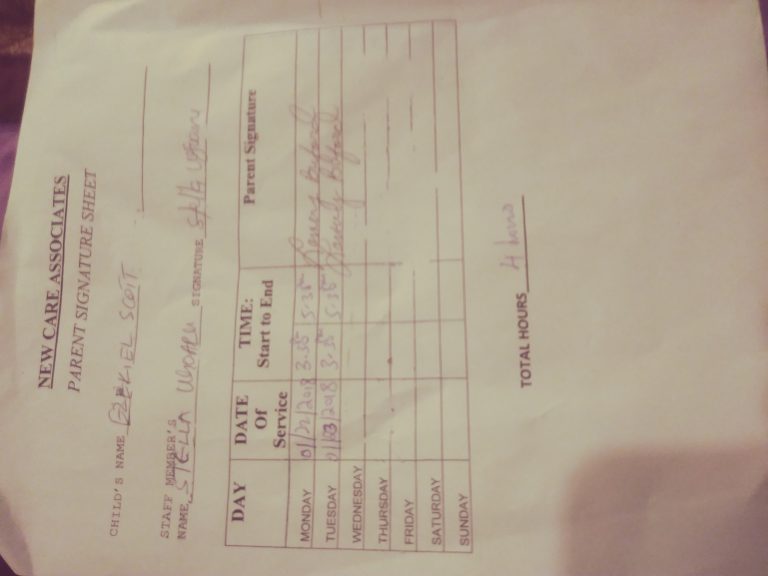 NEW CARE ASSOCIATES
PARENT SIGNATURE SHEET
CHILD'S NAME EZEKIEL SCOTT
STAFF MEMBER'S
NAME STELLA SIGNATURE Stella
DAY DATE Of Service TIME: Start to End Parent Signature
MONDAY 01/22/2018 3.35 5.35
TUESDAY 01/23/2018 3.35 5.35
WEDNESDAY
THURSDAY
FRIDAY
SATURDAY
SUNDAY
TOTAL HOURS 4 hours